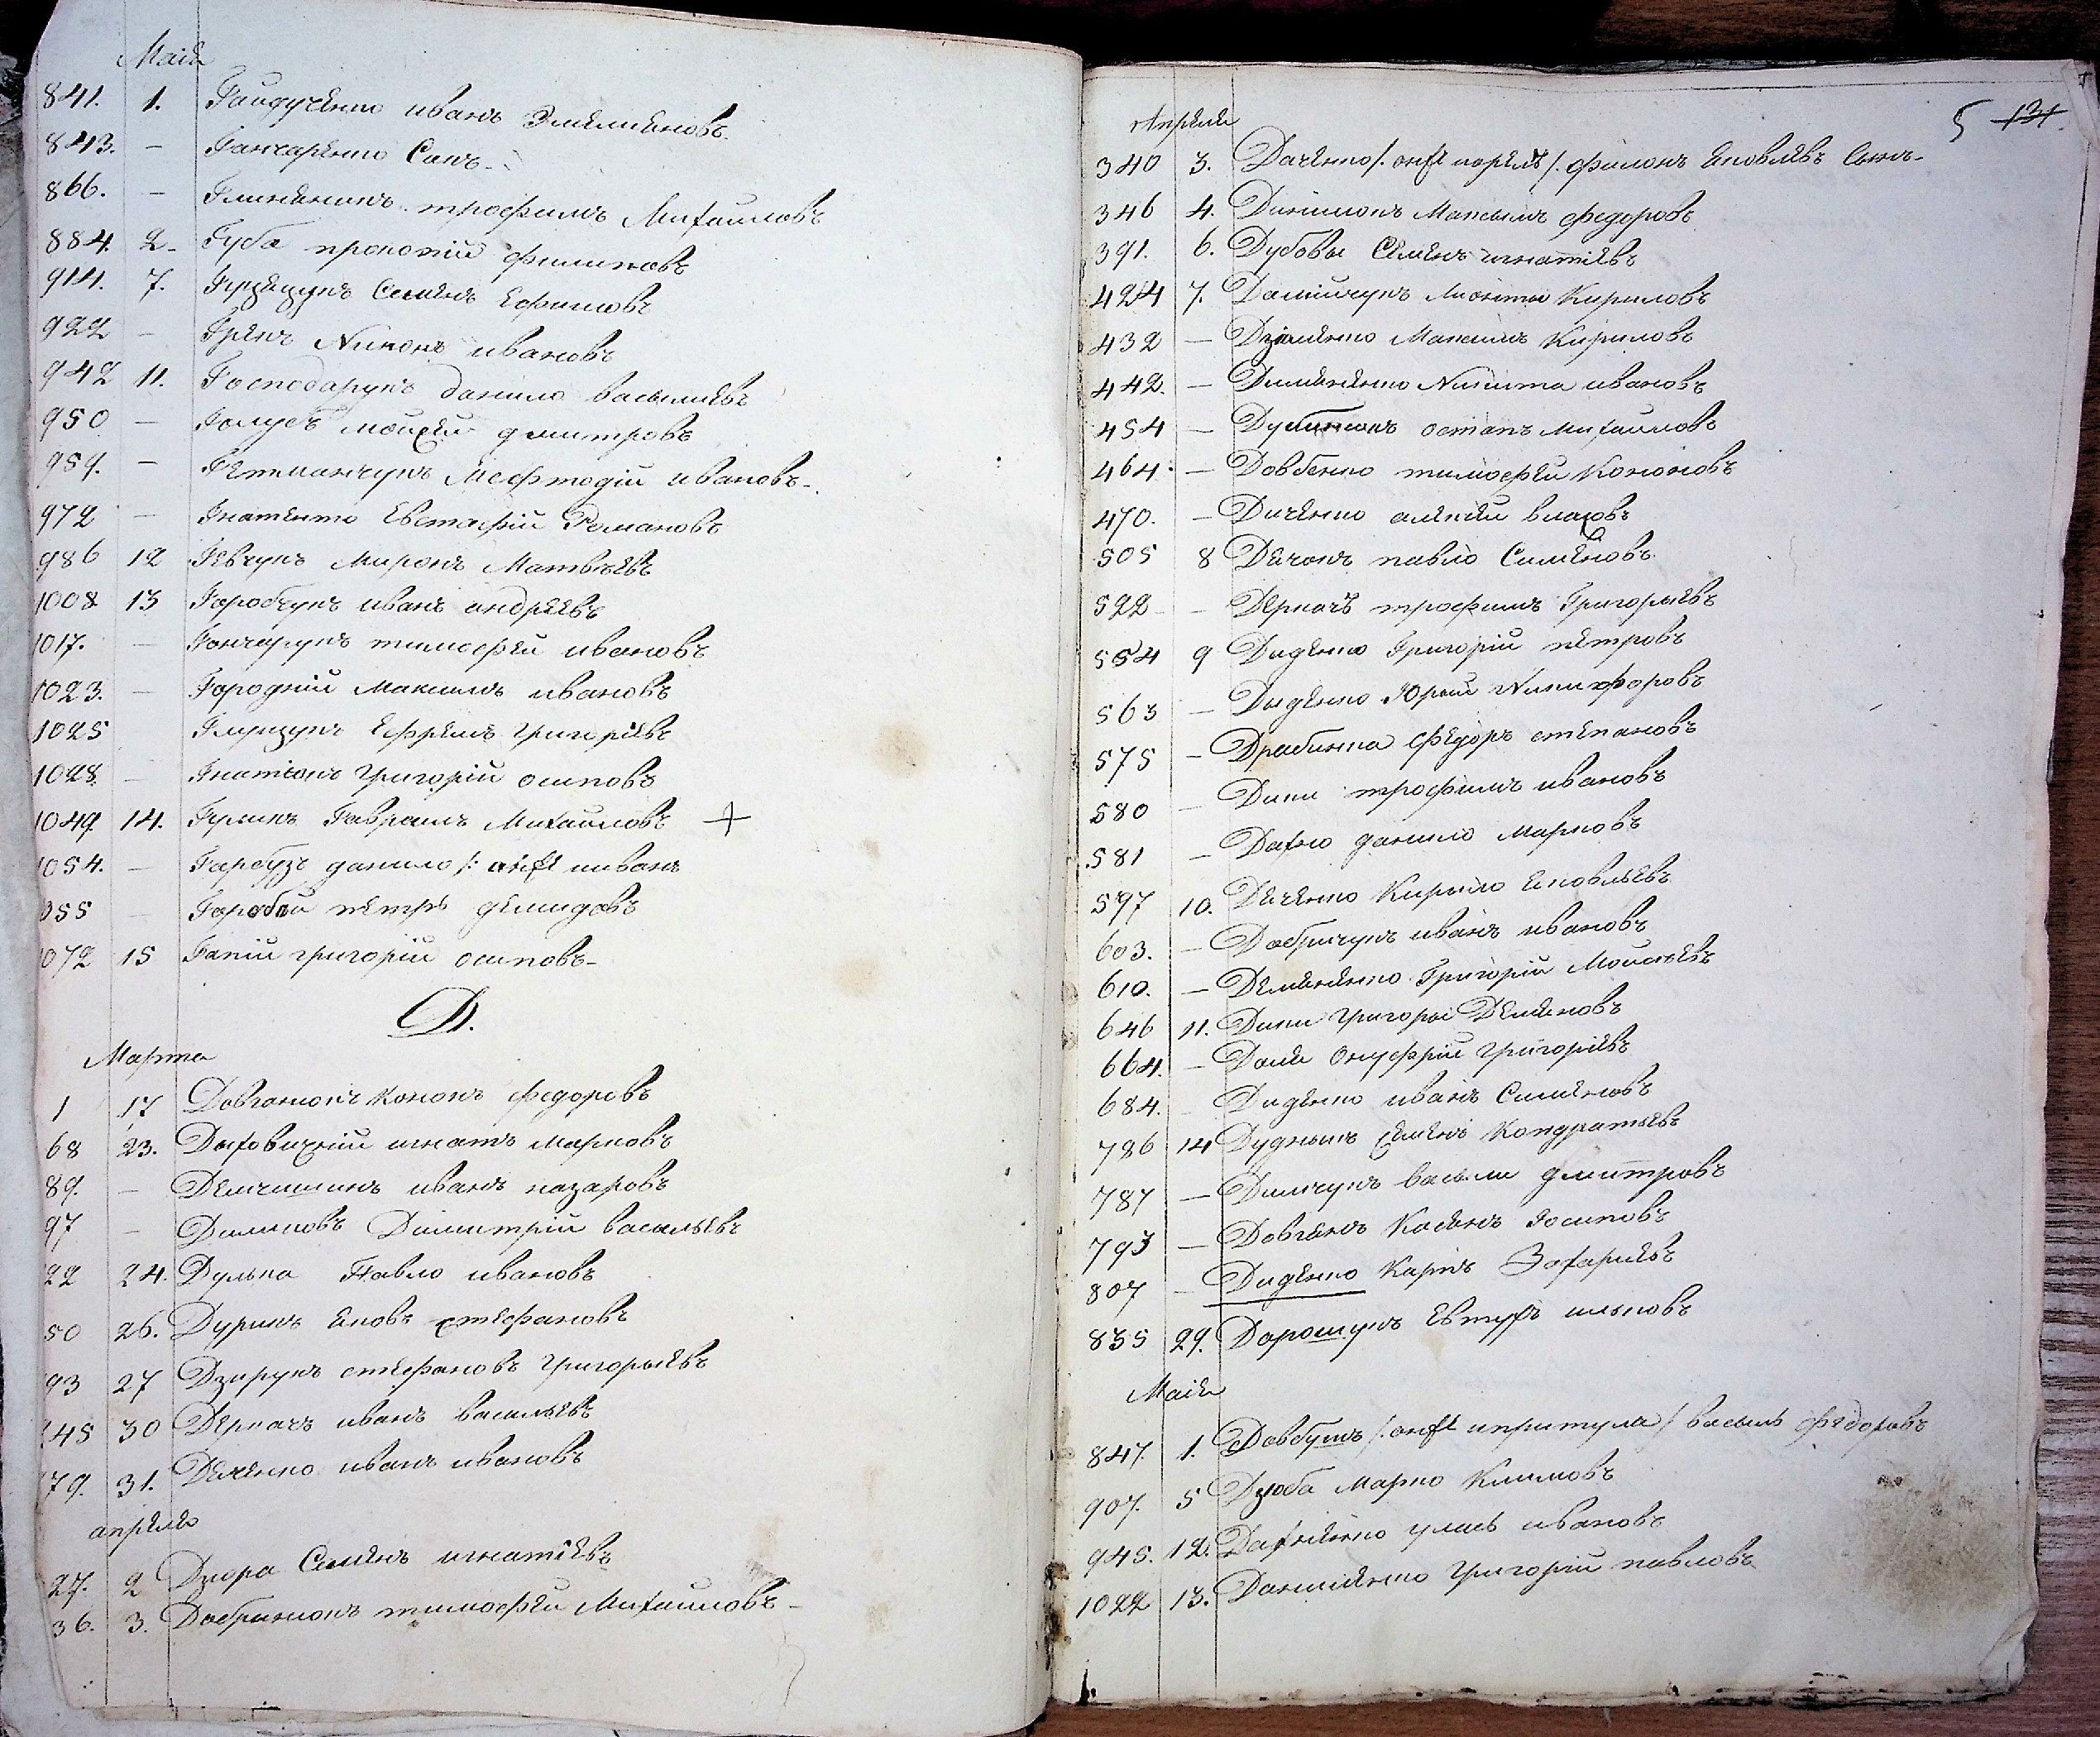 Маія
841. 1. Гайдученко иванъ Эмеліяновъ
843. — Ганчаренко Сакъ
866. — трофимъ Михайловъ
884. 2 Губа прокопій филиповъ
914. 7. Семенъ Ефимовъ
922 — Никонъ ивановъ
942 11. Господарукъ данило васылiевъ
950 — Голубъ моисей дмитровъ
959. — Гетманчукъ Мефтодій ивановъ
972 — Гнатенко Евстафій Романовъ
986 12 Гевчукъ Миронъ Матвѣевъ
1008 13 Горобчукъ иванъ андреевъ
1017. — Гончарукъ тимофей ивановъ
1023. — Городній Максимъ ивановъ
1025 Ефремъ григоріевъ
1028. — Гнатюкъ григорій осиповъ
1049 14. Гулькъ Гаврашъ Михайловъ +
1054. — Гарбузъ данило
055 — Горобей петръ демидовъ
072 15 Гапій григорій осиповъ
Д.
Марта
1 17 Довганюкъ Кононъ федоровъ
68 23. игнатъ марковъ
89. — Демчишинъ иванъ назаровъ
97 — Димковъ Димитрій васильевъ
22 24. Дулька Павло ивановъ
50 26. Дурикъ яковъ стефановъ
93 27 Дзирукъ стефановъ григорьевъ
45 30 Деркачъ иванъ васильевъ
79. 31. иванъ ивановъ
апреля
27. 2 Семенъ игнатіевъ
36. 3. Добринюкъ тимофей Михайловъ
5 131
Апреля
340 3. Даченко филонъ яковлевъ Сынъ
346 4. Максымъ федоровъ
391. 6. Дубовы Семенъ игнатіевъ
424 7. Кириловъ
432 — Максимъ Кириловъ
442. — Никита ивановъ
454 — остапъ михайловъ
464. — Довбенко тимофей Кононовъ
470. — Диченко алексей власовъ
505 8 Дечокъ павло Сименовъ
522 — Деркачъ трофимъ Григорьевъ
554 9 Диденко Григорій петровъ
563 — Диденко Юрый Никифоровъ
575 — Драбинка федоръ степановъ
580 — Дики трофимъ ивановъ
581 — Дахно данило марковъ
597 10. Деченко Кирило яковлевъ
603. — Добричукъ иванъ ивановъ
610. — Демяненко Григорій Моисеевъ
646 11. Дики григоры Демяновъ
664. — Онуфрій григоріевъ
684. Диденко иванъ Сименовъ
786 14 Семенъ Кондратьевъ
787 — Димчукъ васыли дмитровъ
793 — Довганъ Касянъ Іосиповъ
807 — Диденко Карпъ Захаріевъ
835 29. Дорошукъ ильковъ
Маія
847. 1. Довбушъ притула василь федоровъ
907. 5 Дзюба Марко Климовъ
945. 12. уласъ ивановъ
1022 13. Даниленко григорій павловъ